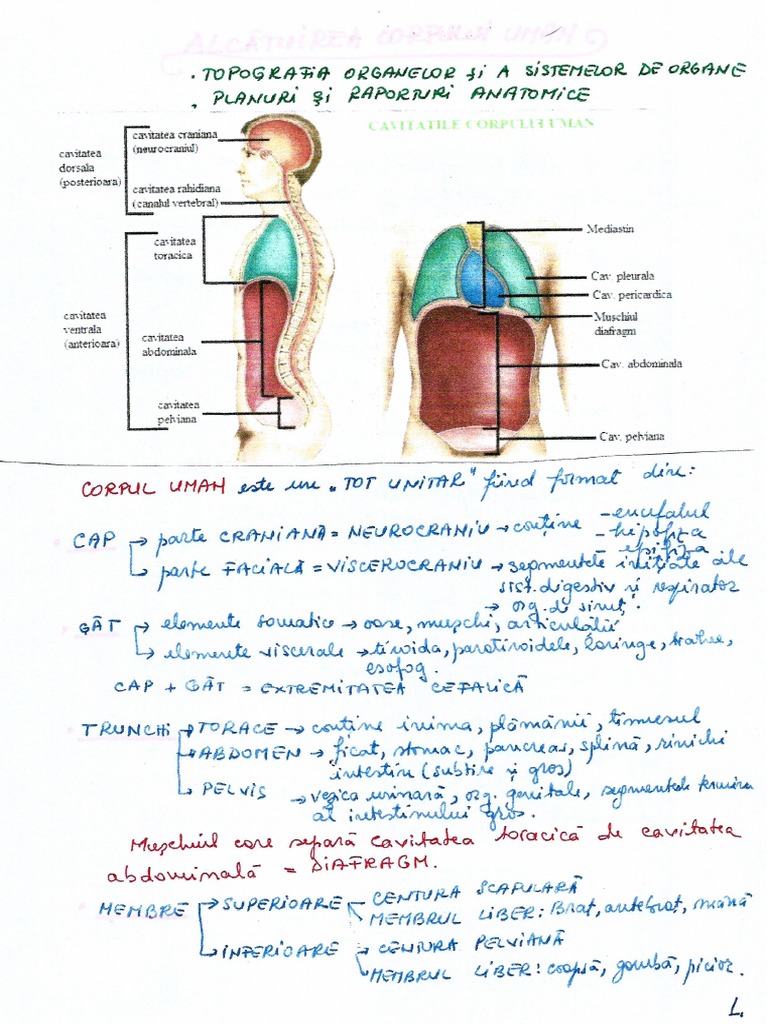 ALCĂTUIREA CORPULUI UMAN
. TOPOGRAFIA ORGANELOR ȘI A SISTEMELOR DE ORGANE
. PLANURI ȘI RAPORTURI ANATOMICE
CAVITATILE CORPULUI UMAN
cavitatea craniana
(neurocraniul)
cavitatea
dorsala
(posterioara)
cavitatea rahidiana
(canalul vertebral)
cavitatea
toracica
cavitatea
ventrala
(anterioara)
cavitatea
abdominala
cavitatea
pelviana
Mediastin
Cav. pleurala
Cav. pericardica
Muschiul
diafragm
Cav. abdominala
Cav. pelviana
CORPUL UMAN este un „TOT UNITAR" fiind format din:
CAP → parte CRANIANĂ = NEUROCRANIU → conține - encefalul
- hipofiza
- epifiza
→ parte FACIALĂ = VISCEROCRANIU → segmentele inițiale ale
sist. digestiv și respirator
→ org. de simț.
GÂT → elemente somatice → oase, mușchi, articulații
→ elemente viscerale → tiroida, paratiroidele, laringe, trahee,
esofag.
CAP + GÂT = EXTREMITATEA CEFALICĂ
TRUNCHI → TORACE → conține inima, plămânii, timusul
→ ABDOMEN → ficat, stomac, pancreas, splină, rinichi
intestin (subțire și gros)
→ PELVIS → vezica urinară, org. genitale, segmentele termina
al intestinului gros.
Mușchiul care separă cavitatea toracică de cavitatea
abdominală = DIAFRAGM.
MEMBRE → SUPERIOARE → CENTURA SCAPULARĂ
MEMBRUL LIBER: Braț, antebraț, mână
→ INFERIOARE → CENTURA PELVIANĂ
→ MEMBRUL LIBER: coapsă, gambă, picior.
1.